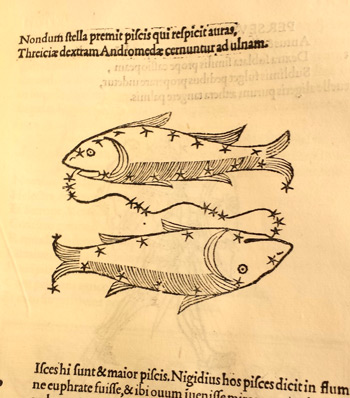 Nondum stella premit piscis qui respicit auras,
Threiciæ dextram Andromedæ cernuntur ad ulnam.
Isces hi sunt & maior piscis. Nigidius hos pisces dicit in flum
ne euphrate fuisse, & ibi ouum